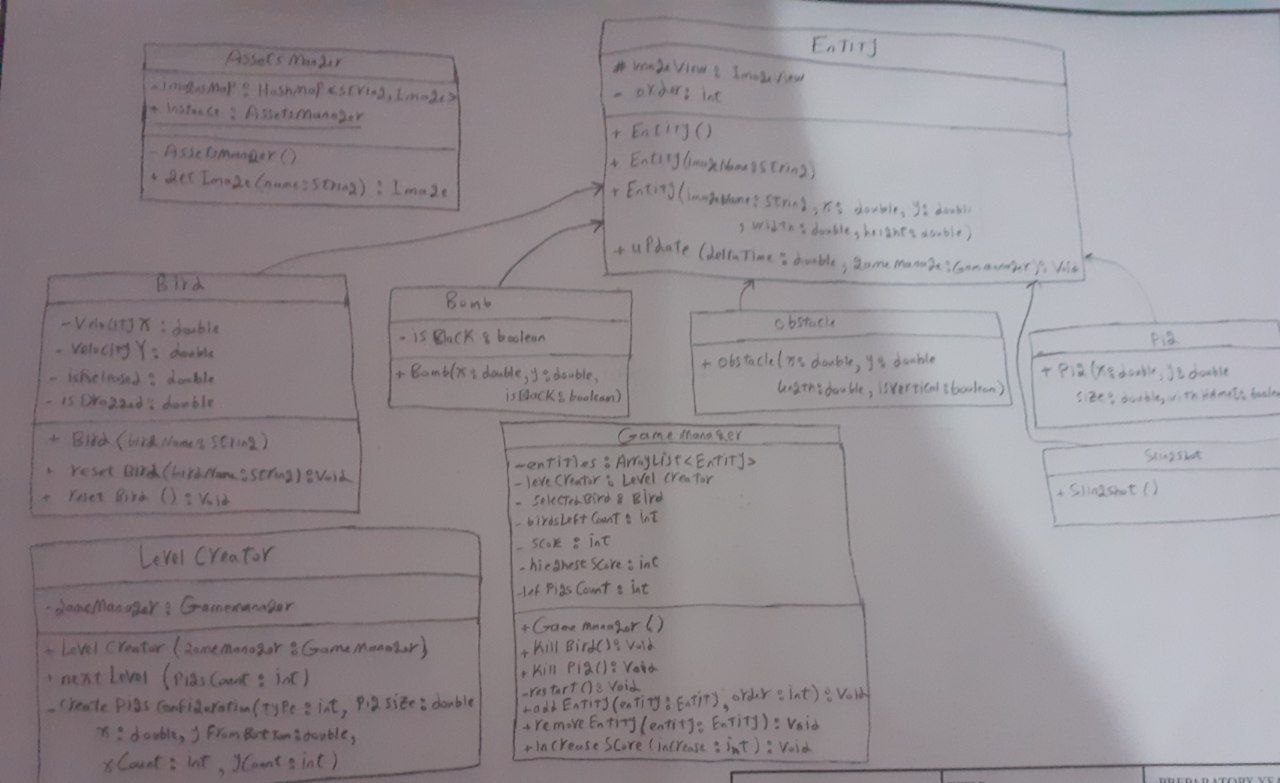 Assets Manager
- ImagesMap : HashMap<String, Image>
+ instance : AssetsManager
- AssetsManager()
+ getImage(name: String) : Image
Entity
# imageView : ImageView
- order : int
+ Entity()
+ Entity(imageName: String)
+ Entity(imageName: String, x: double, y: double
, width: double, height: double)
+ update (deltaTime : double, game Manage: Gamanager): Void
Bird
- Velocity X : double
- Velocity Y : double
- isReleased : double
- is Dragged : double
+ Bird (bird Name: String)
+ reset Bird(birdName: String): Void
+ reset Bird () : Void
Bomb
- is Black : boolean
+ Bomb(x: double, y: double,
isBlack: boolean)
Obstacle
+ obstacle(x: double, y: double
length: double, isVertical: boolean)
Pig
+ Pig (x: double, y: double
size: double, with Helmet:
Slingshot
+ Slingshot ()
Game Manager
- entities : ArrayList<Entity>
- leveCreator : Level Creator
- Selected Bird : Bird
- birdsLeft Count : int
- Score : int
- hieghest Score : int
- lef Pigs Count : int
+ Game Manager ()
+ Kill Bird(): Void
+ Kill Pig(): Void
- restart (): Void
+ add Entity (entity: Entity, order : int) : Void
+ remove Entity (entity: Entity) : Void
+ Increase Score (increase : int) : Void
Level Creator
- gameManager : Gamemanager
+ Level Creator (gameManager : GameManager)
+ next Level (Pigs Count : int)
- Create Pigs Configuration(type : int, Pig Size : double
x : double, y From Bottom : double,
x Count : int, y Count : int)
PREPARATORY YEA